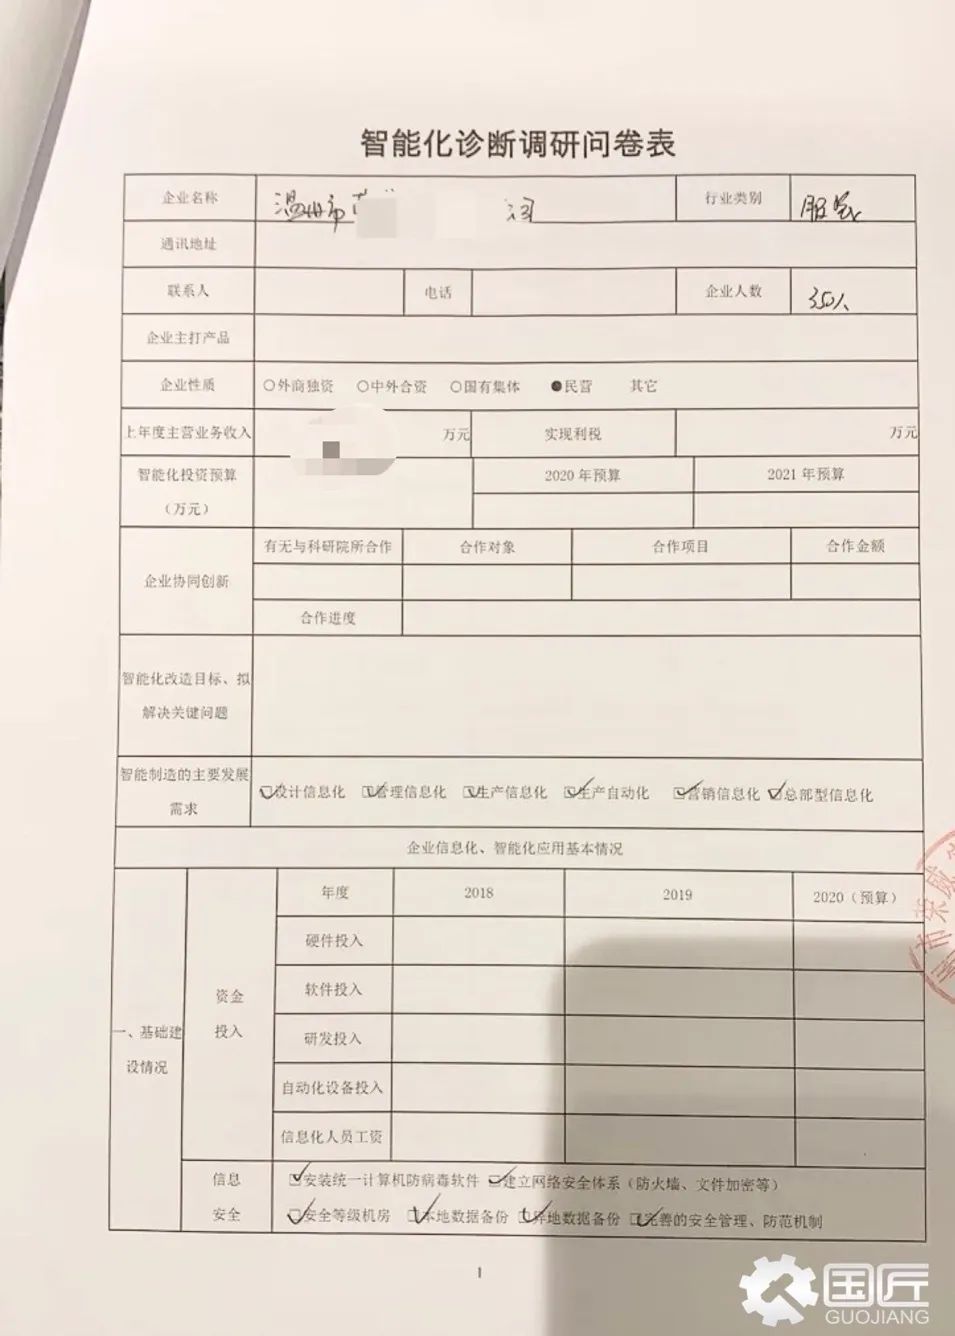 智能化诊断调研问卷表
企业名称 温州市 司 行业类别 服装
通讯地址
联系人 电话 企业人数 350人
企业主打产品
企业性质 ○外商独资 ○中外合资 ○国有集体 ●民营 其它
上年度主营业务收入 万元 实现利税 万元
智能化投资预算 2020年预算 2021年预算
（万元）
有无与科研院所合作 合作对象 合作项目 合作金额
企业协同创新
合作进度
智能化改造目标、拟
解决关键问题
智能制造的主要发展
需求
☑设计信息化 ☑管理信息化 ☑生产信息化 ☑生产自动化 ☑营销信息化 ☑总部型信息化
企业信息化、智能化应用基本情况
年度 2018 2019 2020（预算）
硬件投入
软件投入
资金
投入
研发投入
一、基础建
设情况
自动化设备投入
信息化人员工资
信息
安全
☑安装统一计算机防病毒软件 ☑建立网络安全体系（防火墙、文件加密等）
☑安全等级机房 ☑本地数据备份 ☑异地数据备份 ☑完善的安全管理、防范机制
1
国匠
GUOJIANG